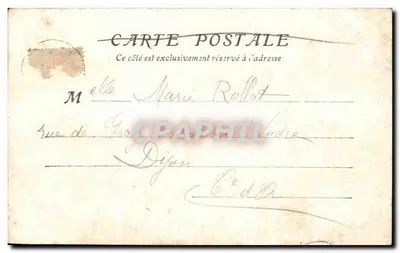 CARTE POSTALE
Ce côté est exclusivement réservé à l'adresse
Melle Marie Rollot
rue de
CPAPHIL
Dijon
Cte d'Or